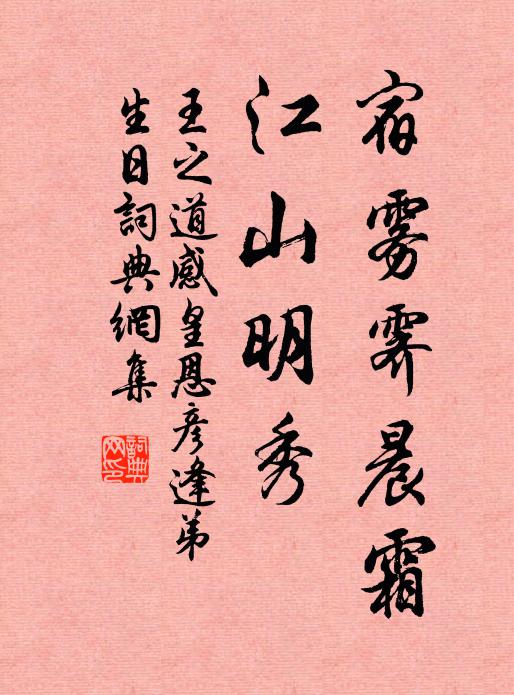 宿雾霁晨霜
江山明秀
王之道感皇恩彦逢弟
生日詞典網集
詞典
网印